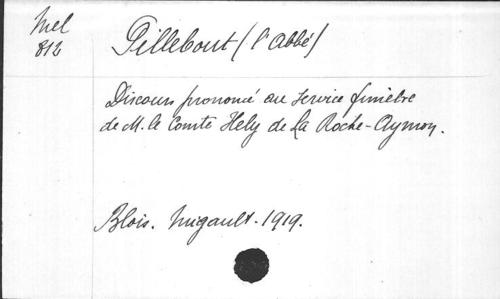 Mel
812
Pillebout (l'abbé)
Discours prononcé au service funèbre
de M. le Comte Hely de La Roche-Aymon.
Blois. Migault. 1919.